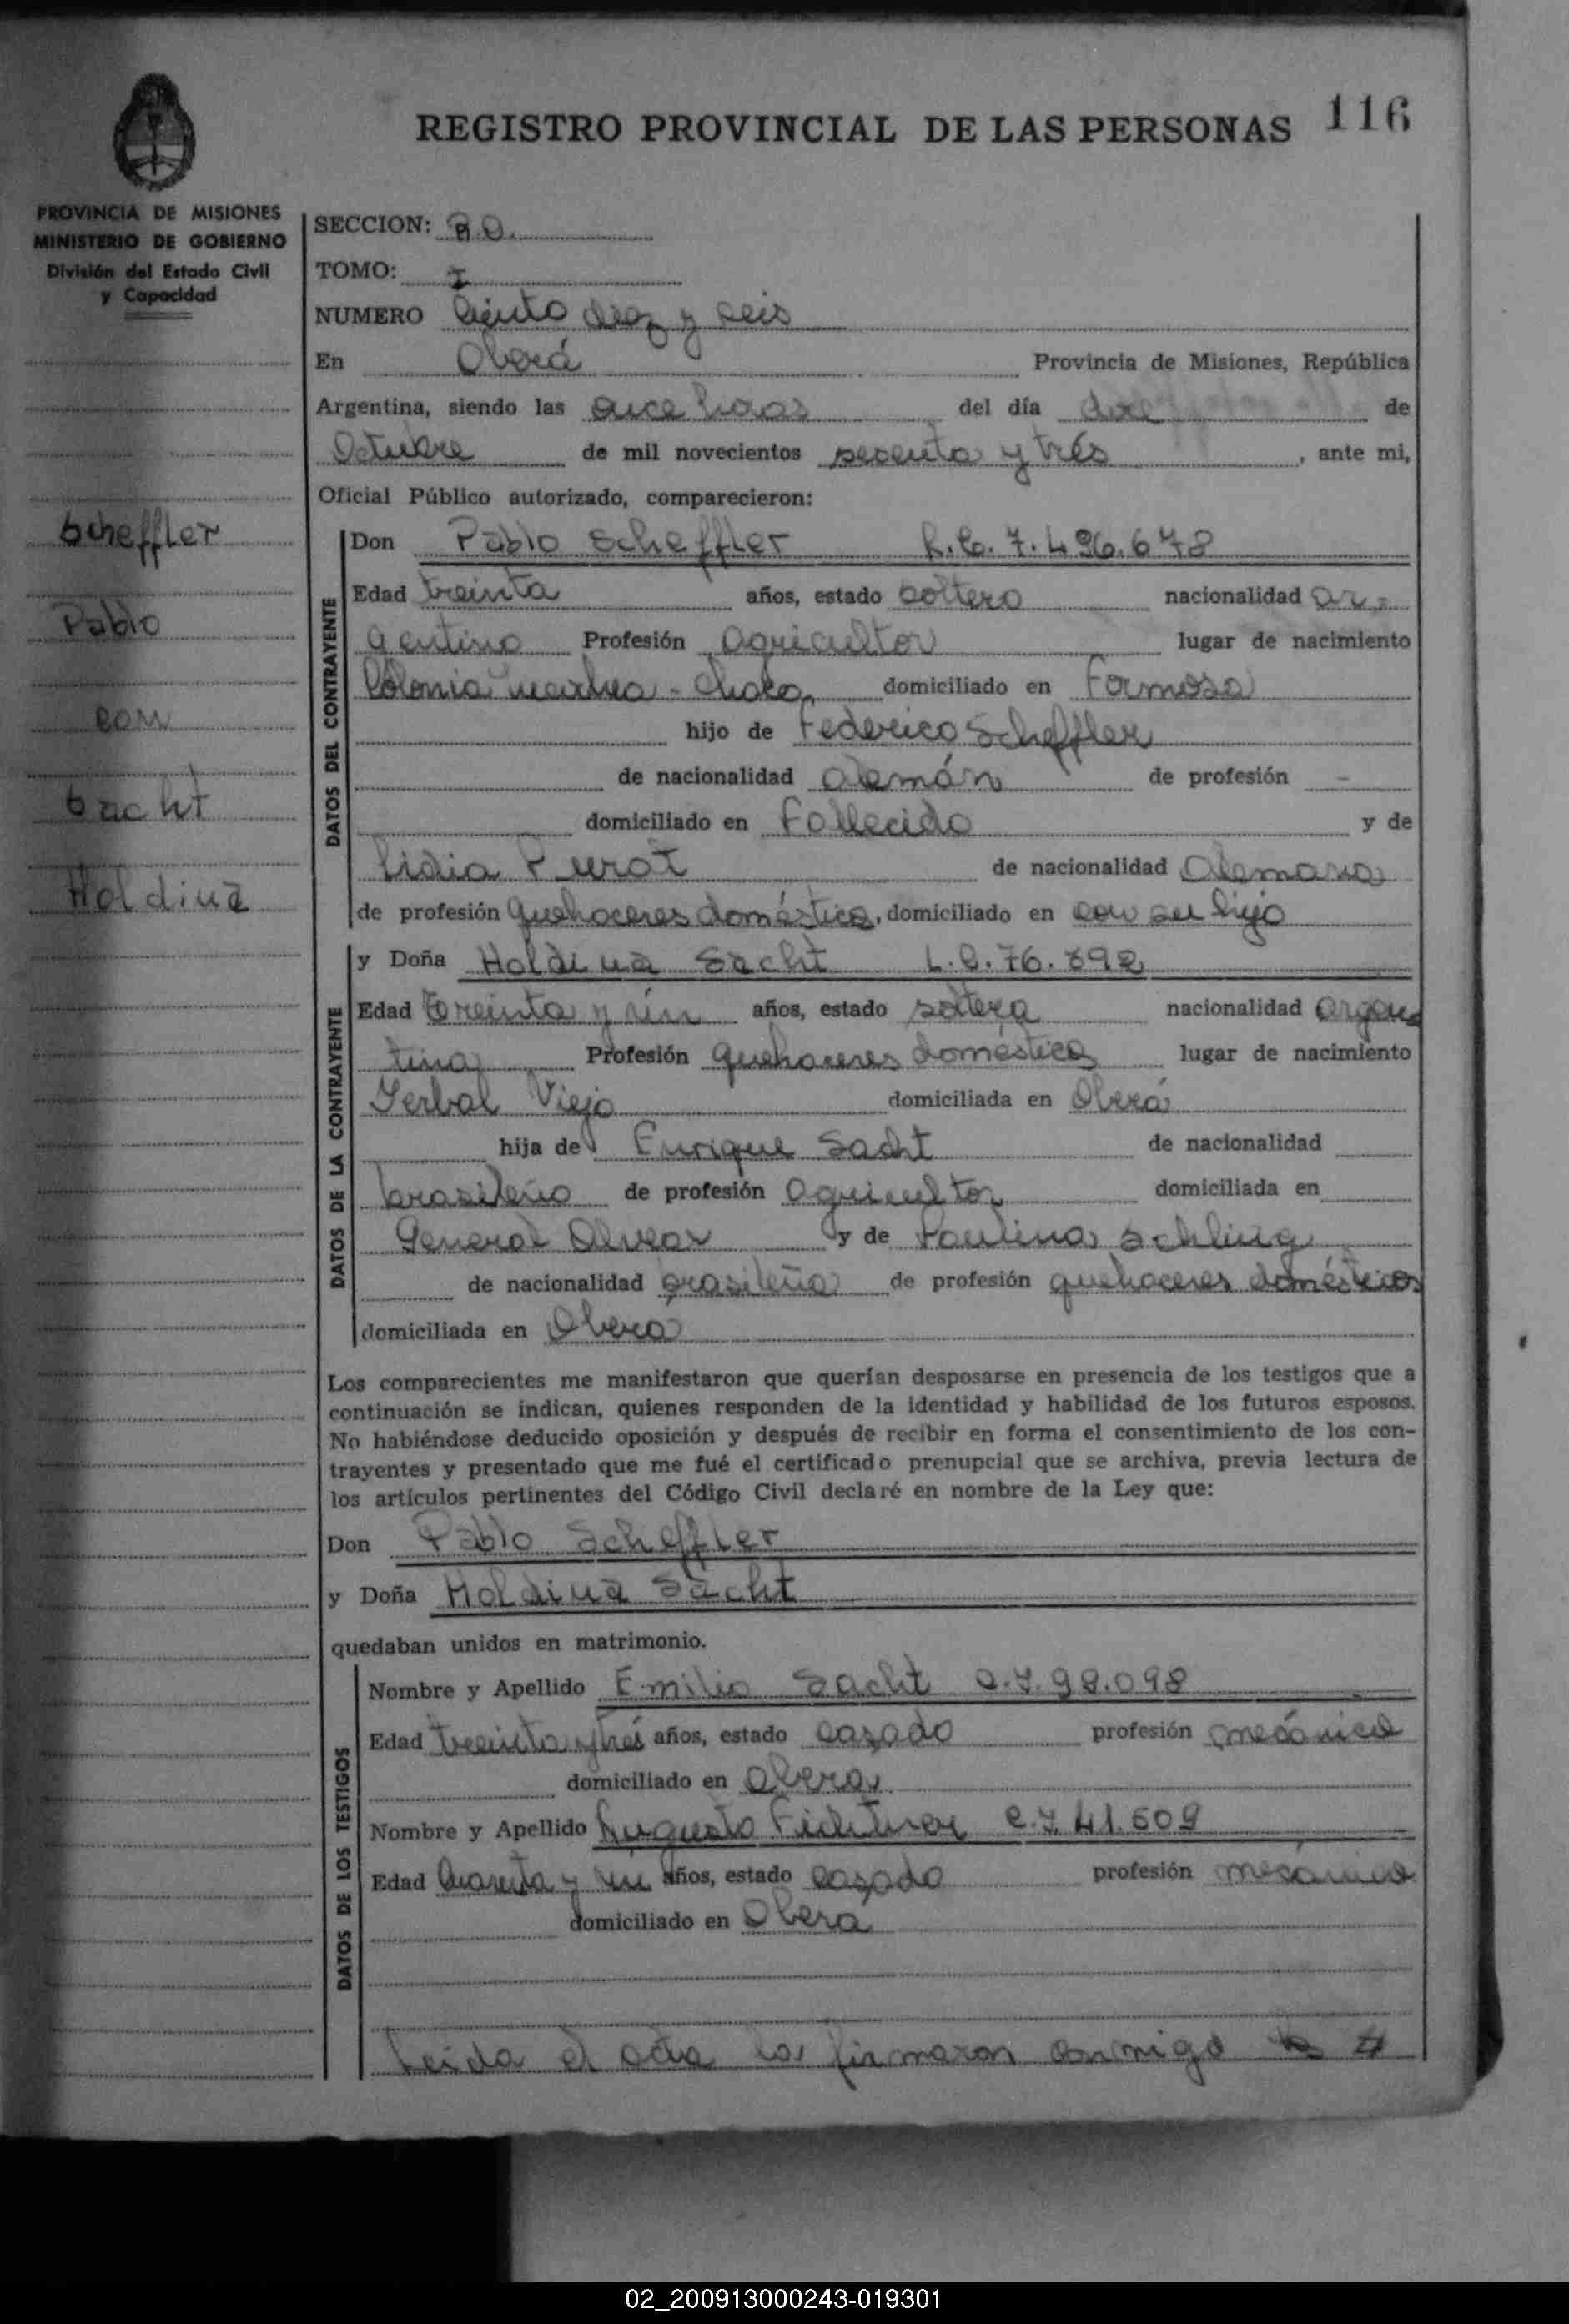 REGISTRO PROVINCIAL DE LAS PERSONAS 116
PROVINCIA DE MISIONES
MINISTERIO DE GOBIERNO
División del Estado Civil
y Capacidad
SECCION:
TOMO: I
NUMERO Ciento diez y seis
En Oberá Provincia de Misiones, República
Argentina, siendo las once horas del día de
Octubre de mil novecientos sesenta y trés, ante mi,
Oficial Público autorizado, comparecieron:
Scheffler
Pablo
con
Sacht
Holdina
DATOS DEL CONTRAYENTE
Don Pablo Scheffler 7.496.678
Edad treinta años, estado soltero nacionalidad ar-
gentino Profesión agricultor lugar de nacimiento
Colonia - domiciliado en Formosa
hijo de Federico Scheffler
de nacionalidad alemán de profesión -
domiciliado en Fallecido y de
Lidia de nacionalidad alemana
de profesión quehaceres doméstico, domiciliado en con su hijo
DATOS DE LA CONTRAYENTE
y Doña Holdina Sacht L.C. 76.
Edad treinta y un años, estado soltera nacionalidad argen
tina Profesión quehaceres domésticos lugar de nacimiento
Yerbal Viejo domiciliada en Oberá
hija de Enrique Sacht de nacionalidad
brasileño de profesión agricultor domiciliada en
General Alvear y de Paulina Schling
de nacionalidad brasileña de profesión quehaceres domésticos
domiciliada en Oberá
Los comparecientes me manifestaron que querían desposarse en presencia de los testigos que a
continuación se indican, quienes responden de la identidad y habilidad de los futuros esposos.
No habiéndose deducido oposición y después de recibir en forma el consentimiento de los con-
trayentes y presentado que me fué el certificado prenupcial que se archiva, previa lectura de
los artículos pertinentes del Código Civil declaré en nombre de la Ley que:
Don Pablo Scheffler
y Doña Holdina Sacht
quedaban unidos en matrimonio.
DATOS DE LOS TESTIGOS
Nombre y Apellido Emilio Sacht C.I. 98.098
Edad treinta y tres años, estado casado profesión mecánico
domiciliado en Oberá
Nombre y Apellido Augusto C.I. 41.609
Edad Cuarenta y un años, estado casado profesión mecánico
domiciliado en Oberá
Leida el acta la firmaron conmigo
02_200913000243-019301